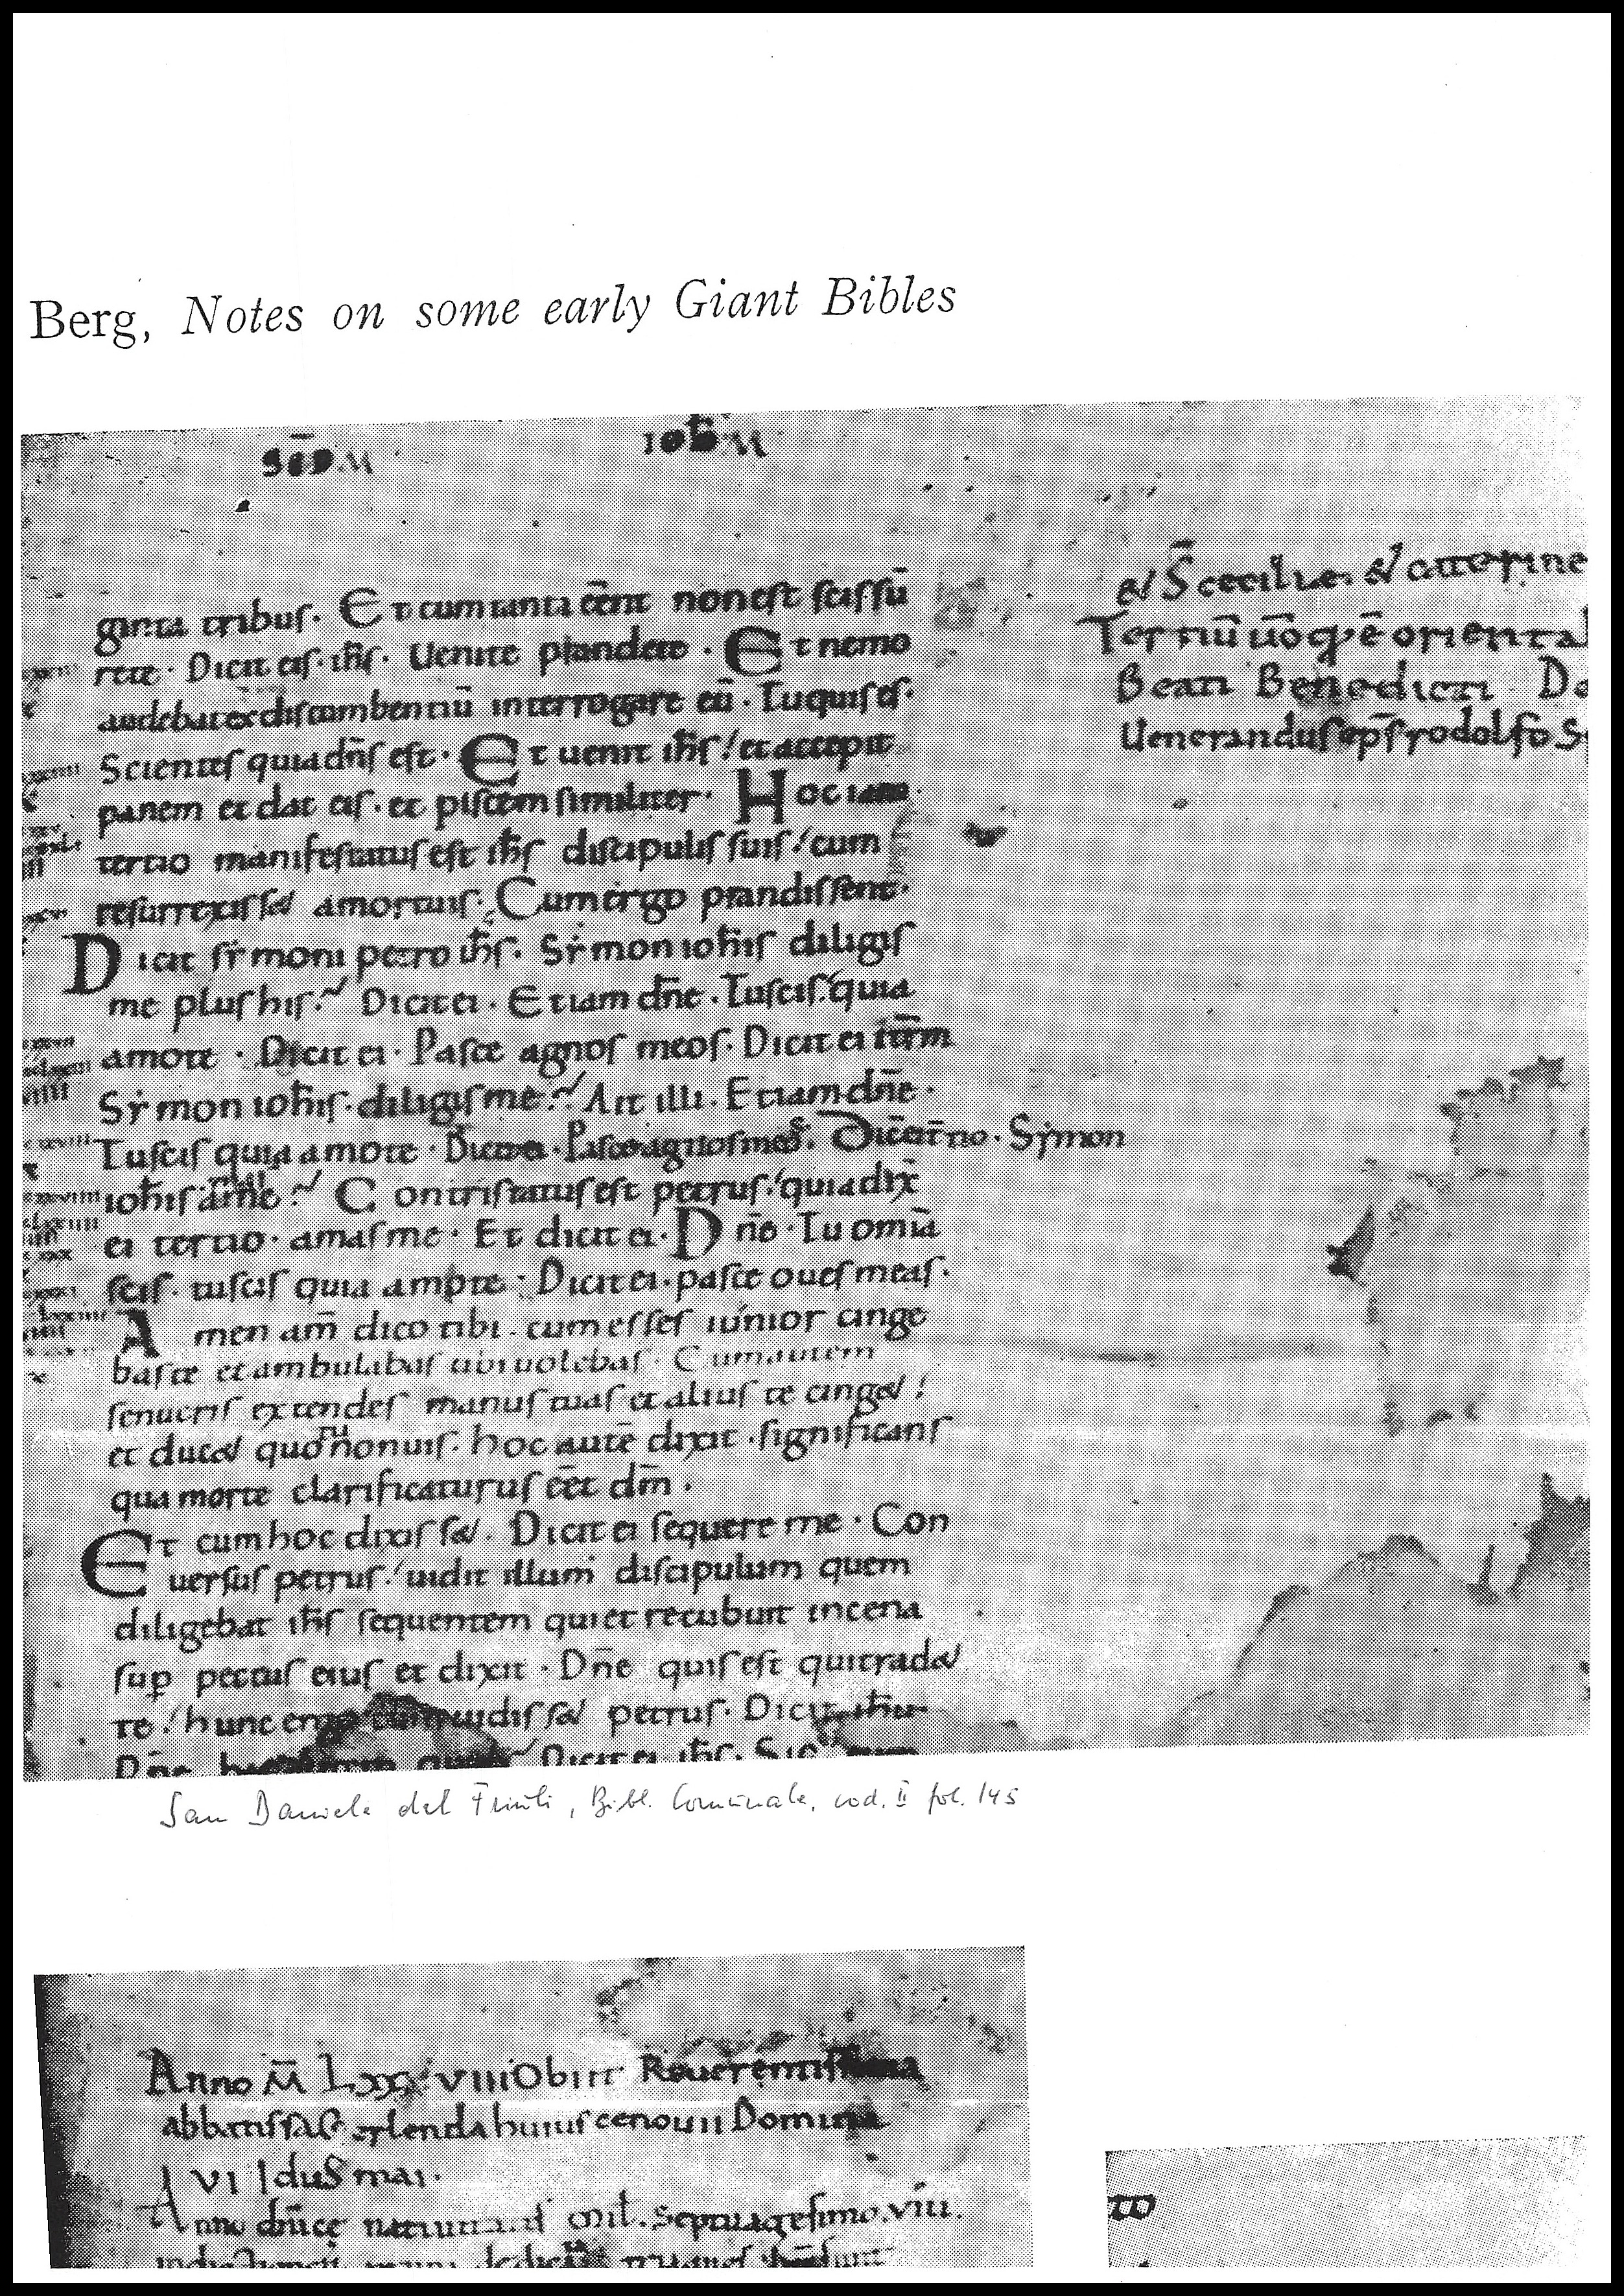 Berg, Notes on some early Giant Bibles
SCD̄M IOH̄M
ginta tribus. Et cum tanti eēnt non est scissū
rete. Dicit eis. ih̄s. Uenite prandete. Et nemo
audebat ex discumbentiū interrogare eū. Tu quis es.
Scientes quia dn̄s est. Et uenit ih̄s / et accepit
panem et dat eis. et piscem similiter. Hoc iam
tertio manifestatus est ih̄s discipulis suis / cum
resurrexisset a mortuis. Cum ergo prandissent.
Dicit sẏmoni petro ih̄s. Sẏmon ioh̄is diligis
me plus his? Dicit ei. Etiam dn̄e. Tu scis quia
amo te. Dicit ei. Pasce agnos meos. Dicit ei itr̄m
Sẏmon ioh̄is. diligis me? Ait illi. Etiam dn̄e.
Tu scis quia amo te. Dicit ei. Pasce agnos meos. Dic̄ ei t̄no. Sẏmon
ioh̄is am̄e? Contristatus est petrus / quia dix̄
ei tertio. amas me. Et dicit ei. Dn̄e. Tu omīa
scis. tu scis quia amo te. Dicit ei. pasce oues meas.
Amen am̄ dico tibi. cum esses iúnior cinge
bas te et ambulabas ubi uolebas. Cum autem
senueris extendes manus tuas et alius te cinget /
et ducet quo tu non uis. hoc autē dixit. significans
qua morte clarificaturus eēt dm̄.
Et cum hoc dixisset. Dicit ei sequere me. Con
uersus petrus / uidit illum discipulum quem
diligebat ih̄s sequentem qui et recubuit in cena
sup pectus eius et dixit. Dn̄e quis est qui tradet
te / hunc ergo cum uidisset petrus. Dicit ih̄u
Dn̄e Dicit ei ih̄s. Sic
& S̄ cecilie & catterine
Tertiū ūo q̨ ē oriental
Beati Benedicti Do
Uenerandus ep̄s rodolfo S
San Daniele del Friuli, Bibl. Comunale, cod. II fol. 145
Anno M̄ Lxx VIII Obiit Reuerentissima
abbatissa huius cenouii Domina
VI Idus mai.
Anno dn̄icę mil. Septuagesimo. viii.
to